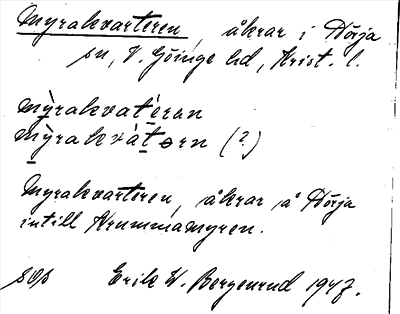 Myrakvarteren, åkrar i Hörja
sn, V. Göinge hd, Krist. l.
mỳrakvatéran
mỳrakvàtərn (?)
Myrakvarteren, åkrar å Hörja
intill Krummamyren.
Erik W. Bergenrud 1947.